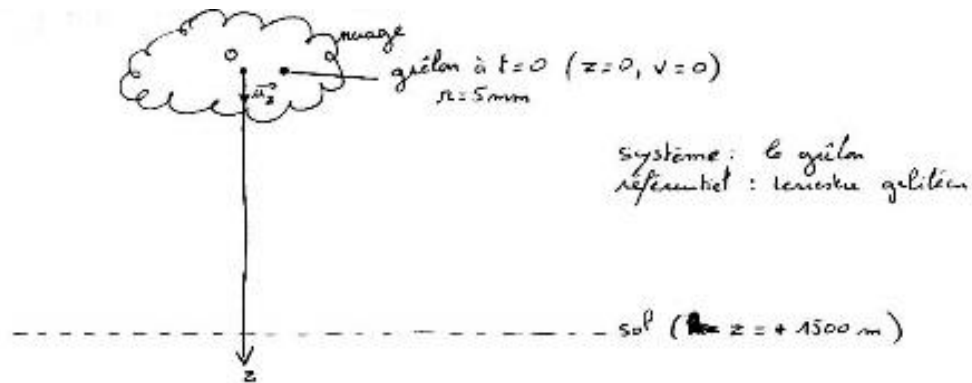 nuage
O
grêlon à t=0 (z=0, v=0)
r=5mm
u⃗z
système : le grêlon
référentiel : terrestre galiléen
sol ( z = + 1500 m)
z